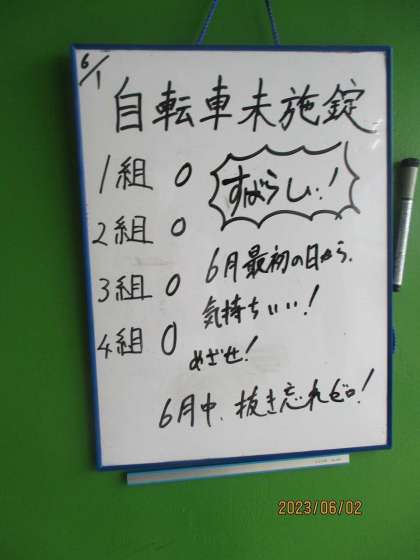 6/1
自転車未施錠
1組 0
2組 0
3組 0
4組 0
すばらしい!
6月最初の日から、
気持ちいい!
めざせ!
6月中、抜き忘れゼロ!
2023/06/02